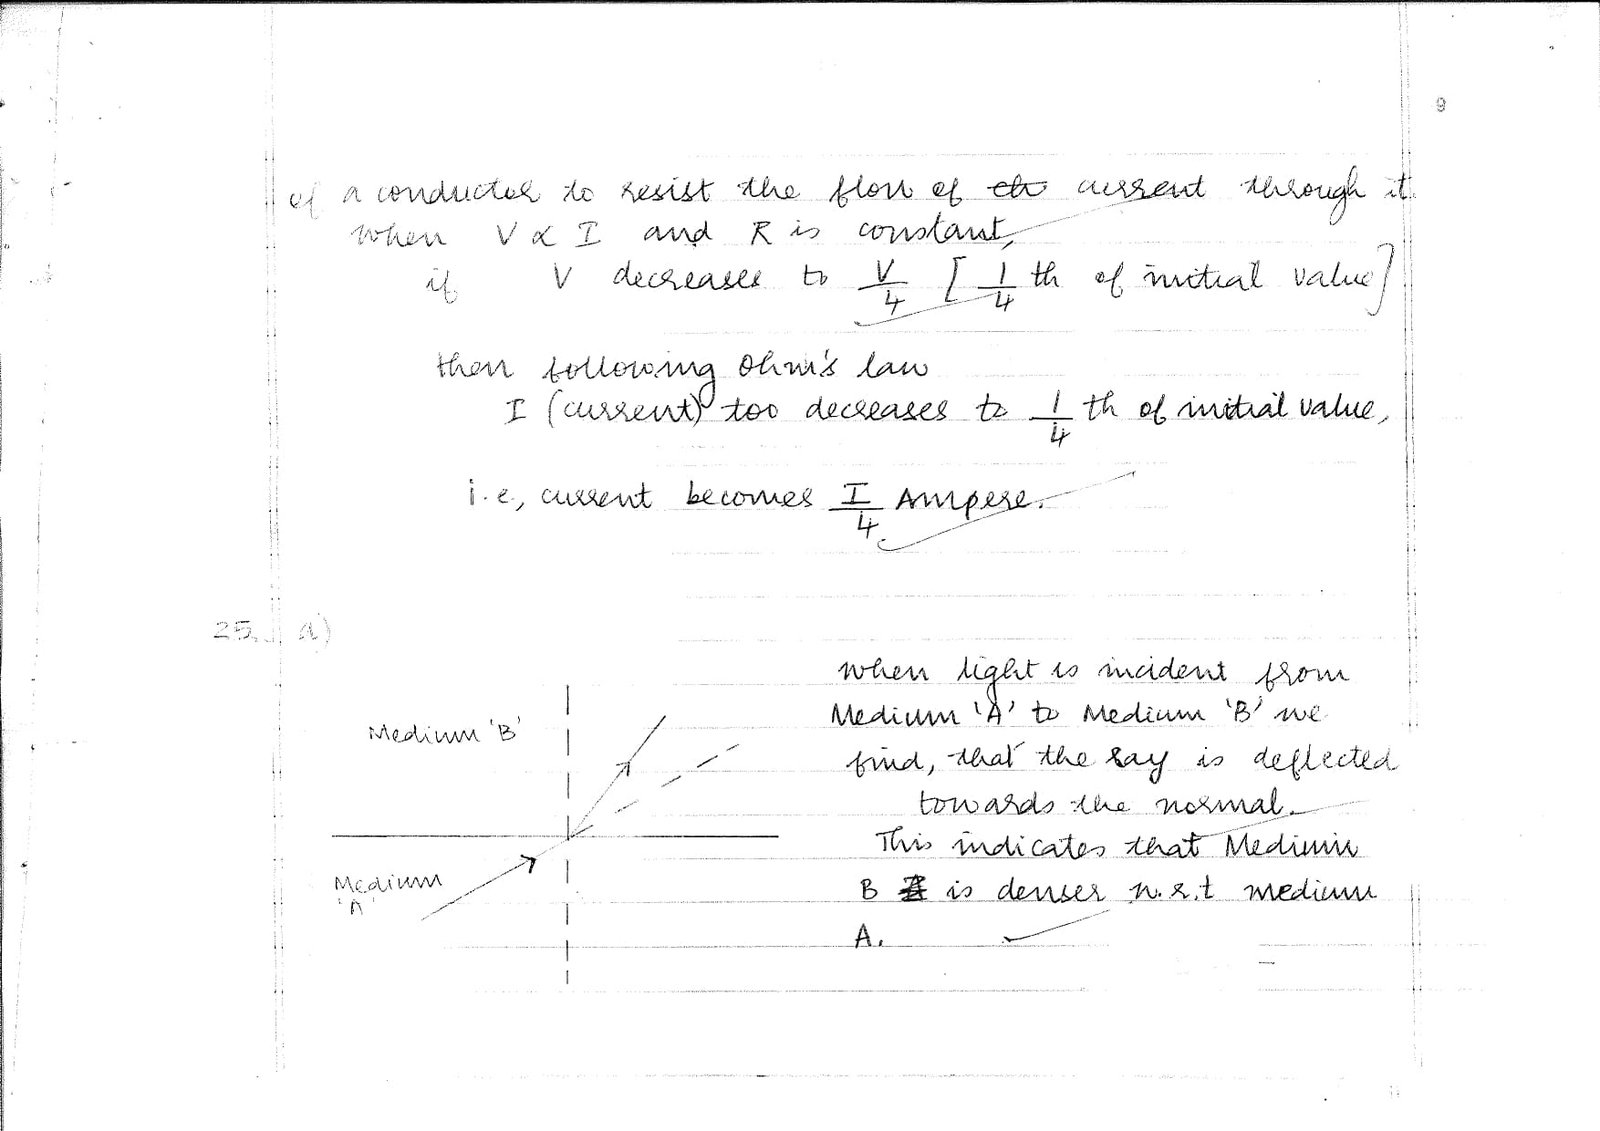 9
of a conductor to resist the flow of ch current through it
when V ∝ I and R is constant,
if V decreases to V/4 [1/4 th of initial value]
then following Ohm's law
I (current) too decreases to 1/4 th of initial value,
i.e, current becomes I/4 Ampere.
25. a)
when light is incident from
Medium 'A' to Medium 'B' we
find, that the ray is deflected
towards the normal.
This indicates that Medium
B is denser w.r.t medium
A.
Medium 'B'
Medium
'A'